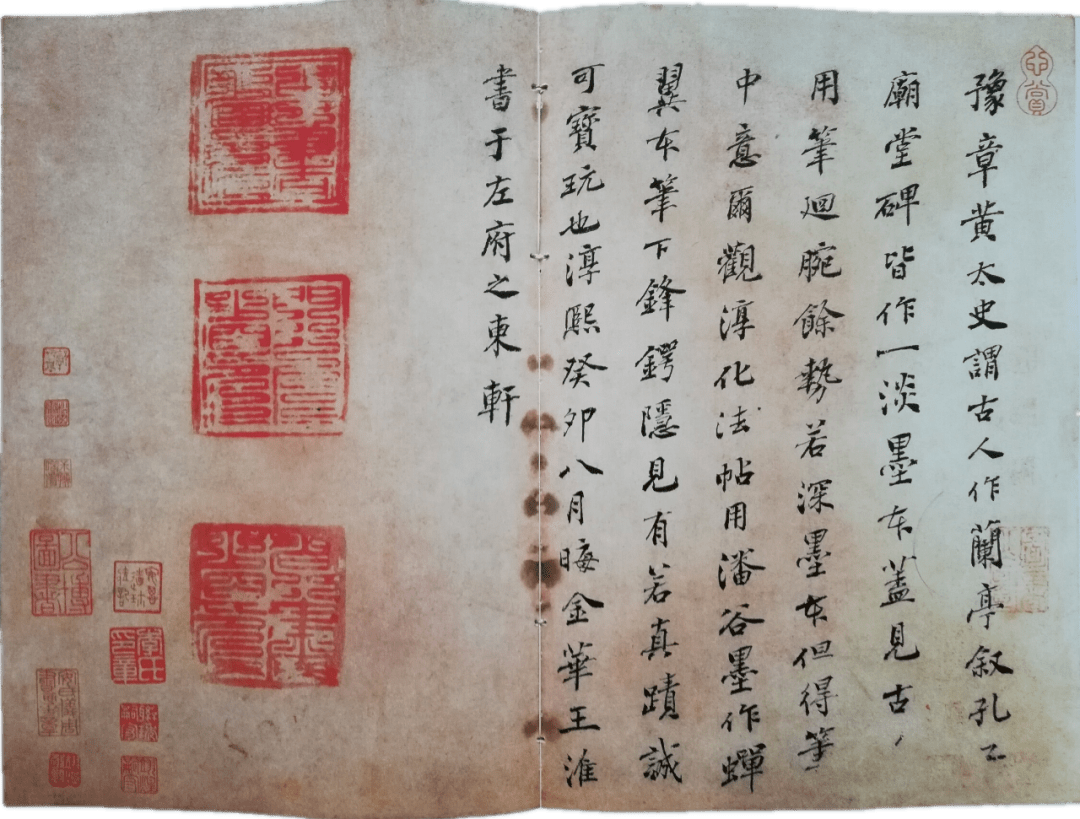 豫章黄太史謂古人作蘭亭叙孔子
廟堂碑皆作一淡墨本蓋見古
用筆廻腕餘勢若深墨本但得筆
中意爾觀淳化法帖用潘谷墨作蟬
翼本筆下鋒鍔隱見有若真蹟誠
可寶玩也淳熙癸卯八月晦金華王淮
書于左府之東軒
李氏印章